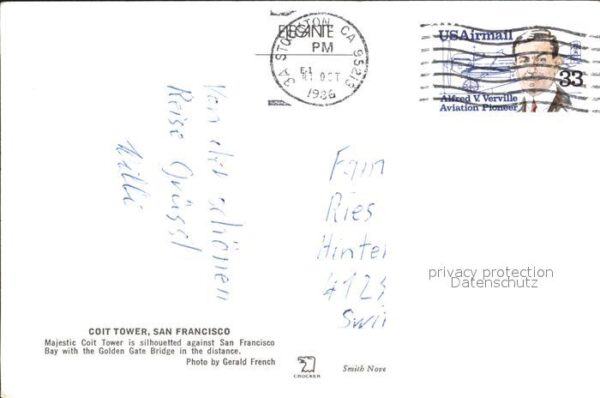 ELEGANTE
STOCKTON CA 95213
PM
OCT
1986
USAirmail
33
Alfred V. Verville
Aviation Pioneer
Von der schönen
Reise Grüsst
Willi
Fam
Ries
Hinter
412
Swi
privacy protection
Datenschutz
COIT TOWER, SAN FRANCISCO
Majestic Coit Tower is silhouetted against San Francisco
Bay with the Golden Gate Bridge in the distance.
Photo by Gerald French
CROCKER
Smith Nove